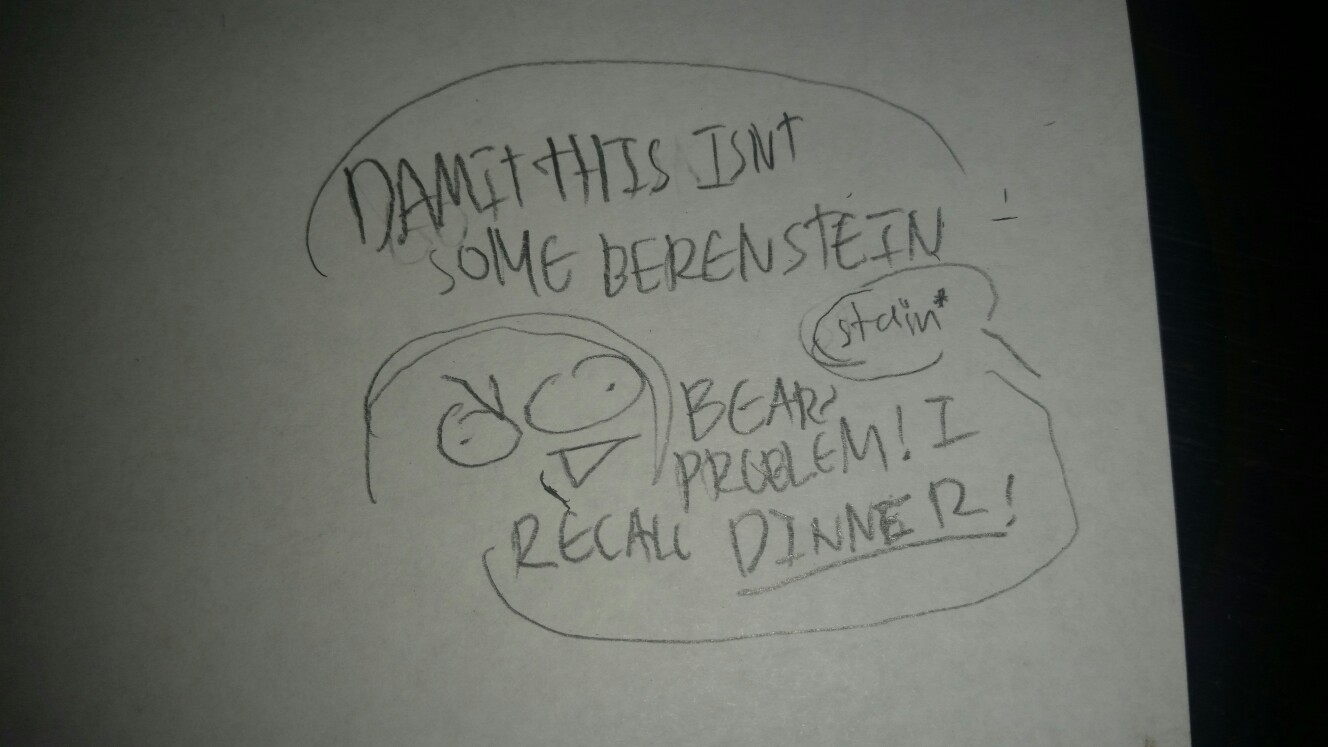 DAMIT THIS ISNT
SOME BERENSTEIN
stain*
BEAR
PROBLEM! I
RECALL DINNER!